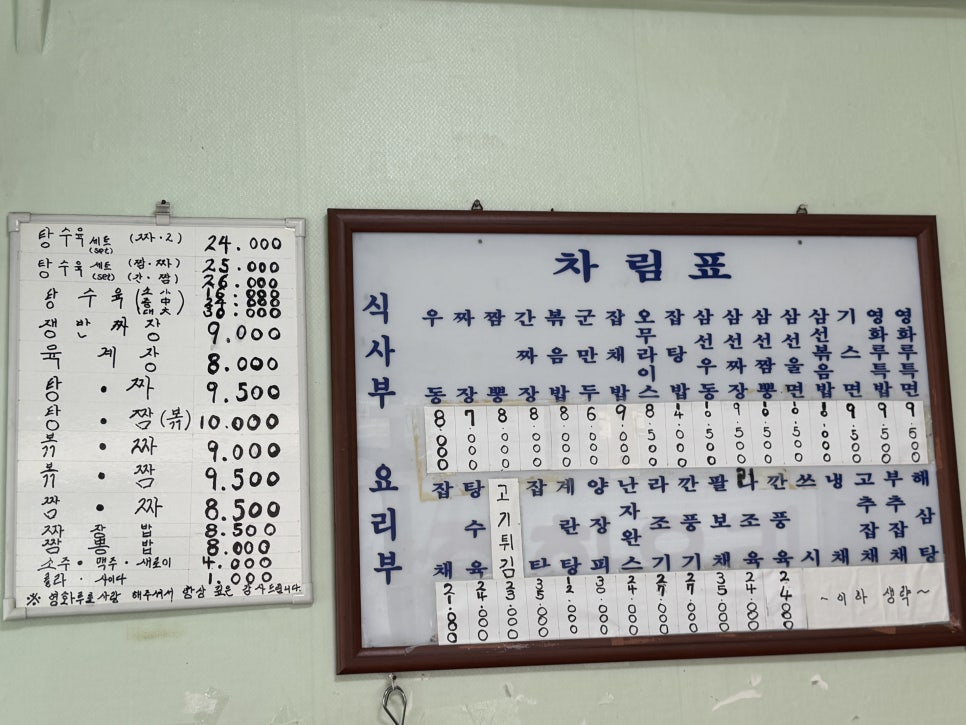 탕수육 세트(set) (짜·2) 24.000
탕수육 세트(set) (짬·짜) 25.000
(간·짬) 26.000
탕 수 육 (소小 중中 대大)
쟁 반 짜 장 9.000
육 계 장 8.000
탕 · 짜 9.500
탕 · 짬(볶) 10.000
볶 · 짜 9.000
볶 · 짬 9.500
짬 · 짜 8.500
짜 장 밥 8.500
짬 뽕 밥 8.000
소주·맥주·새로이 4.000
콜라·사이다 1.000
※ 영화루로 사람 해주셔서 항상 깊은 감사드립니다.
차 림 표
식사부
우동 8.000
짜장 7.000
짬뽕 8.000
간짜장 8.000
볶음밥 8.000
군만두 6.000
잡채밥 9.000
오무라이스 8.500
잡탕밥
삼선우동
삼선짜장 9.500
삼선짬뽕
삼선울면
삼선볶음밥
기스면 9.500
영화루특밥 9.000
영화루특면 9.500
요리부
잡채
탕수육 24.000
고기튀김 23.000
잡탕 35.000
계란탕 12.000
양장피
난자완스
라조기 27.000
깐풍기 27.000
팔보채 35.000
라조육 24.000
깐풍육 24.000
쓰시
냉채
고추잡채
부추잡채
해삼탕
~이하 생략~